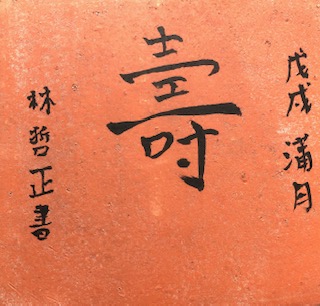 戊戌 滿月
壽
林哲正書